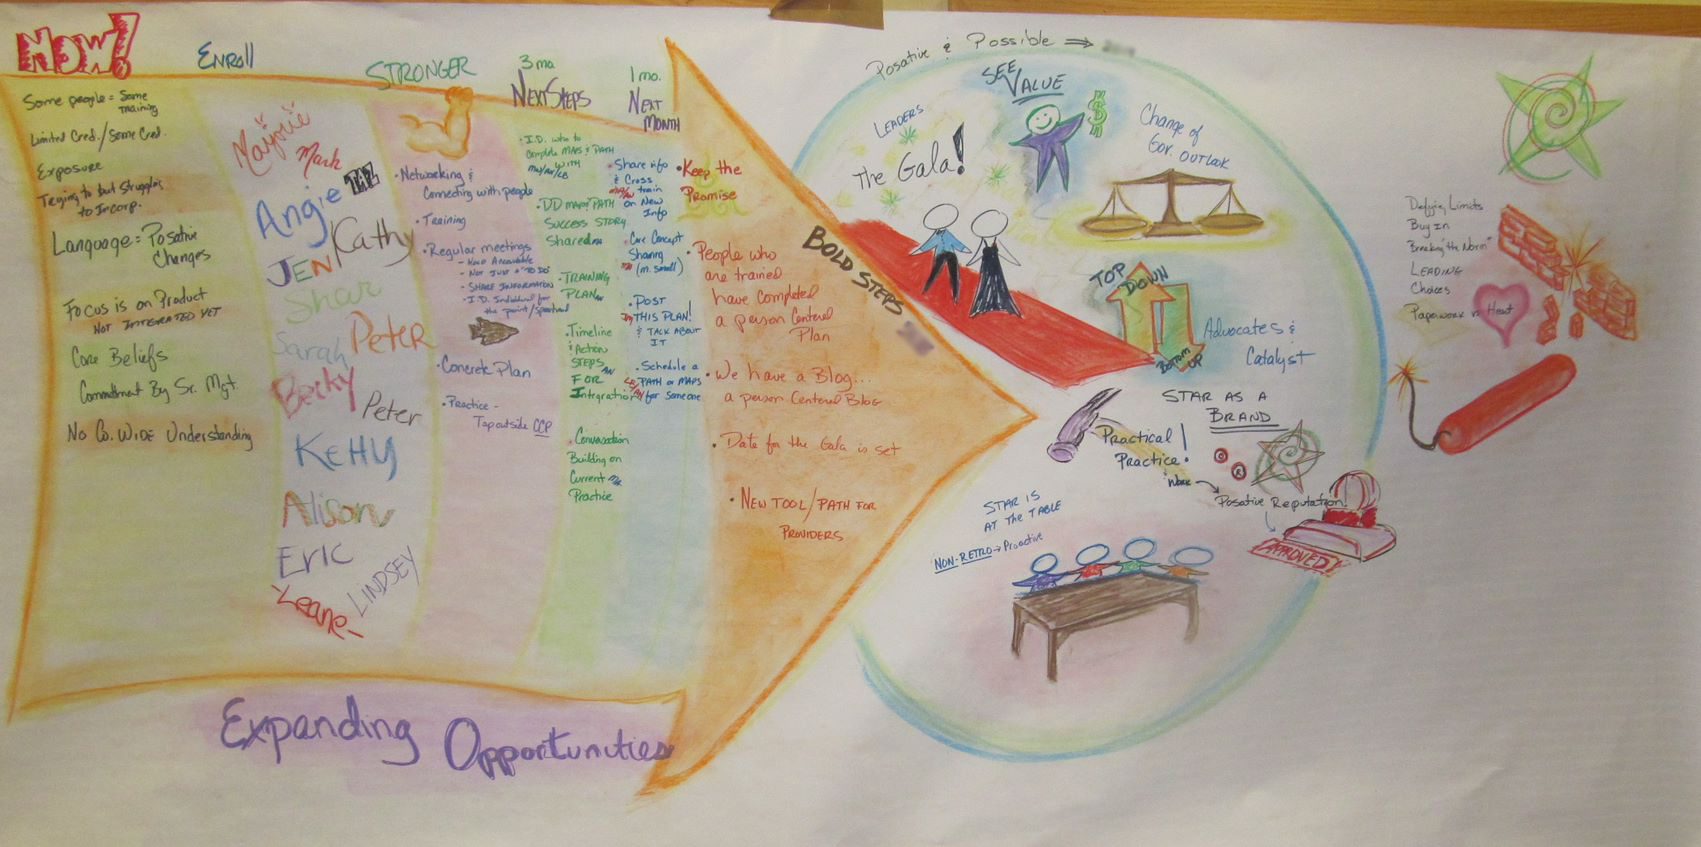 NOW!
Some people = Some
Training
Limited Cred./Some Cred.
Exposure
Trying to but Struggling
to Incorp.
Language = Positive
Changes
Focus is on Product
NOT INTEGRATED YET
Core Beliefs
Commitment By Sr. Mgt.
No Co. Wide Understanding
ENROLL
Marjorie
Mark
Angie
TAZ
Kathy
JEN
Shar
Sarah
Peter
Becky
Peter
Kelly
Alison
Eric
Leane
LINDSEY
STRONGER
• Networking &
Connecting with people
• Training
• Regular meetings
- HOLD ACCOUNTABLE
- NOT JUST A "TO DO"
- SHARE INFORMATION
- I.D. Individual for
the point/spearhead
• Concrete Plan
• Practice -
Tap outside CCP
3 mo.
NEXT STEPS
• I.D. who to
complete MAPS & PATH
WITH
• DD MAP & PATH
SUCCESS STORY
Shared
• TRAINING
PLAN
• Timeline
& Action
STEPS
FOR
Integration
• Conversation
Building on
Current
Practice
1 mo.
NEXT
MONTH
• Share info
& Cross
train
on New
Info
• Core Concept
Sharing
(in. small)
• POST
THIS PLAN!
& TALK ABOUT
IT
• Schedule a
PATH or MAPS
for Someone
BOLD STEPS
• Keep the
Promise
• People who
are trained
have completed
a person Centered
Plan
• We have a Blog...
a person Centered Blog
• Date for the Gala is set
• NEW TOOL/PATH FOR
PROVIDERS
Expanding Opportunities
Posative & Possible ⇒
SEE
VALUE
$
LEADERS
The Gala!
Change of
Gov. OUTLOOK
TOP
DOWN
BOTTOM
UP
Advocates &
Catalyst
STAR AS A
BRAND
Practical
Practice!
Work
© ®
Posative Reputation!
APPROVED!
STAR IS
AT THE TABLE
NON-RETRO → Proactive
Defying Limits
Buy In
Breaking "the Norm"
LEADING
Choices
Paperwork vs Heart